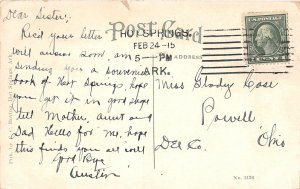 Post Card
HOT SPRINGS
FEB 24-15
5 - PM
ARK.
ADDRESS
Dear Sister;
Recd your letter
will answer soon, am
sending you a souvenir
book of Hot Springs, hope
you get it in good shape
tell Mother, aunt and
Dad Hello for me, hope
this finds you all well
Good Bye
Austin
Miss Glady Case
Powell
Del Co. Ohio
No. 3176